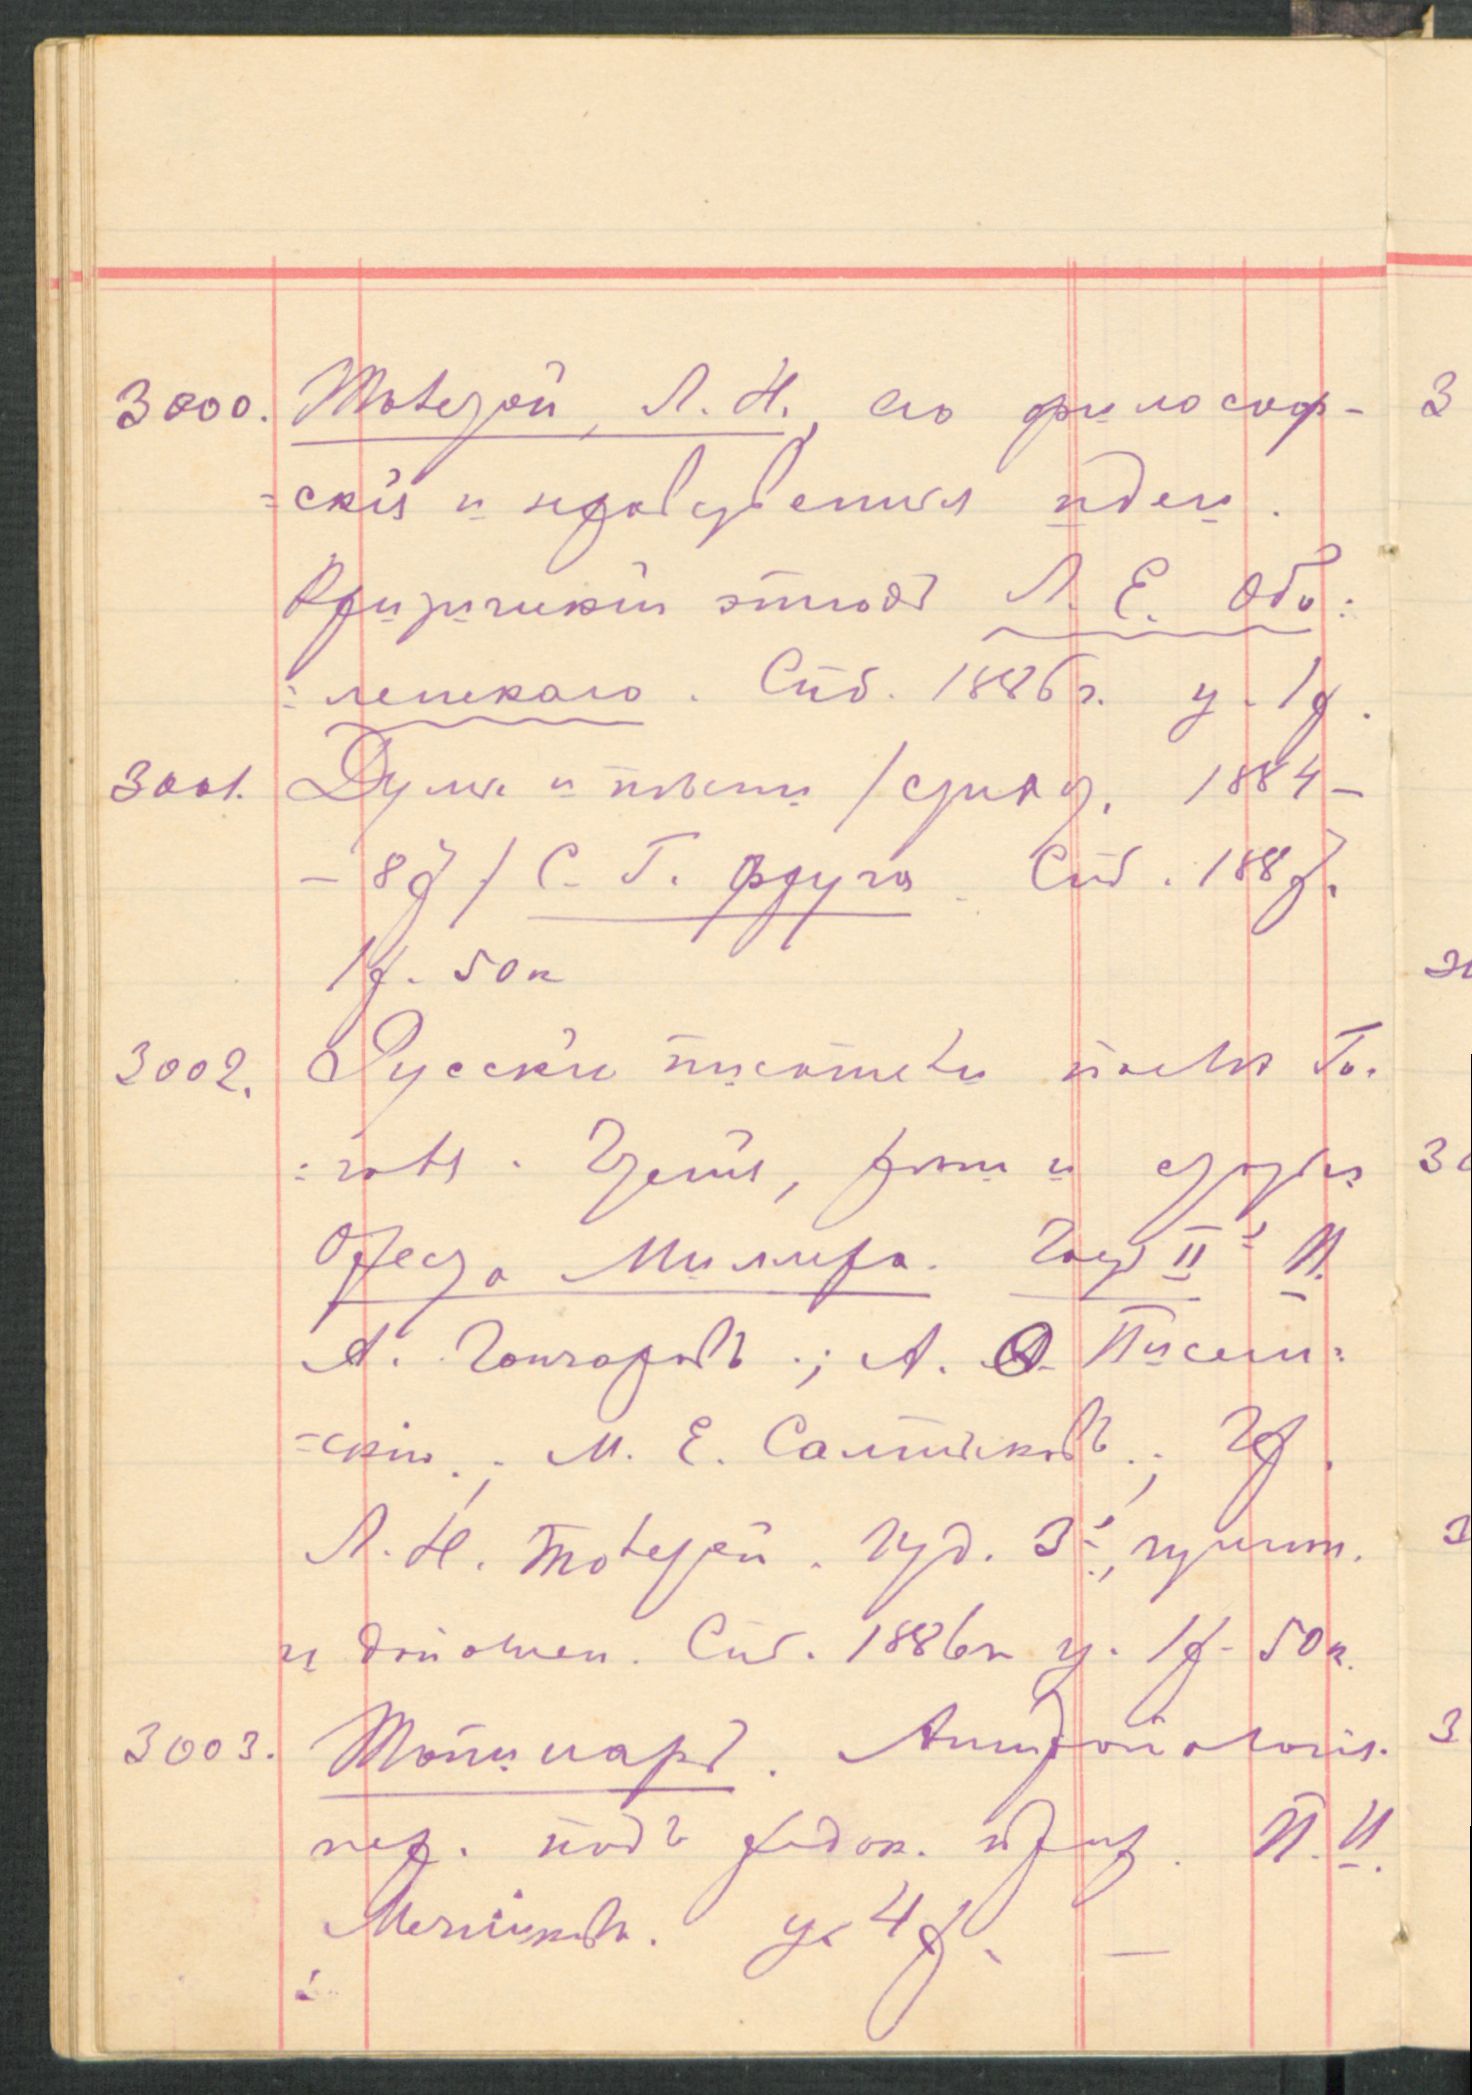 3000. Толстой, Л. Н., его философ-
=скія и нравственныя идеи.
Критическій этюдъ Л. Е. Обо=
=ленскаго. Спб. 1886 г. ц. 1 р.
3001. Думы и пѣсни /стихотв. 1884-
- 87/ С. Г. Фруга. Спб. 1887.
1 р. 50 к
3002. Русскіе писатели послѣ Го=
=голя. Чтенія, рѣчи и статьи
Ореста Миллера. Часть II. И.
А. Гончаровъ; А. Ѳ. Писем=
=скій; М. Е. Салтыковъ; Гр.
Л. Н. Толстой. Изд. 3е, испр.
и дополнен. Спб. 1886 г. ц. 1 р. 50 к.
3003. Топинаръ. Антропологія.
пер. подъ редак. проф. И. И.
Мечникова. ц. 4 р. —